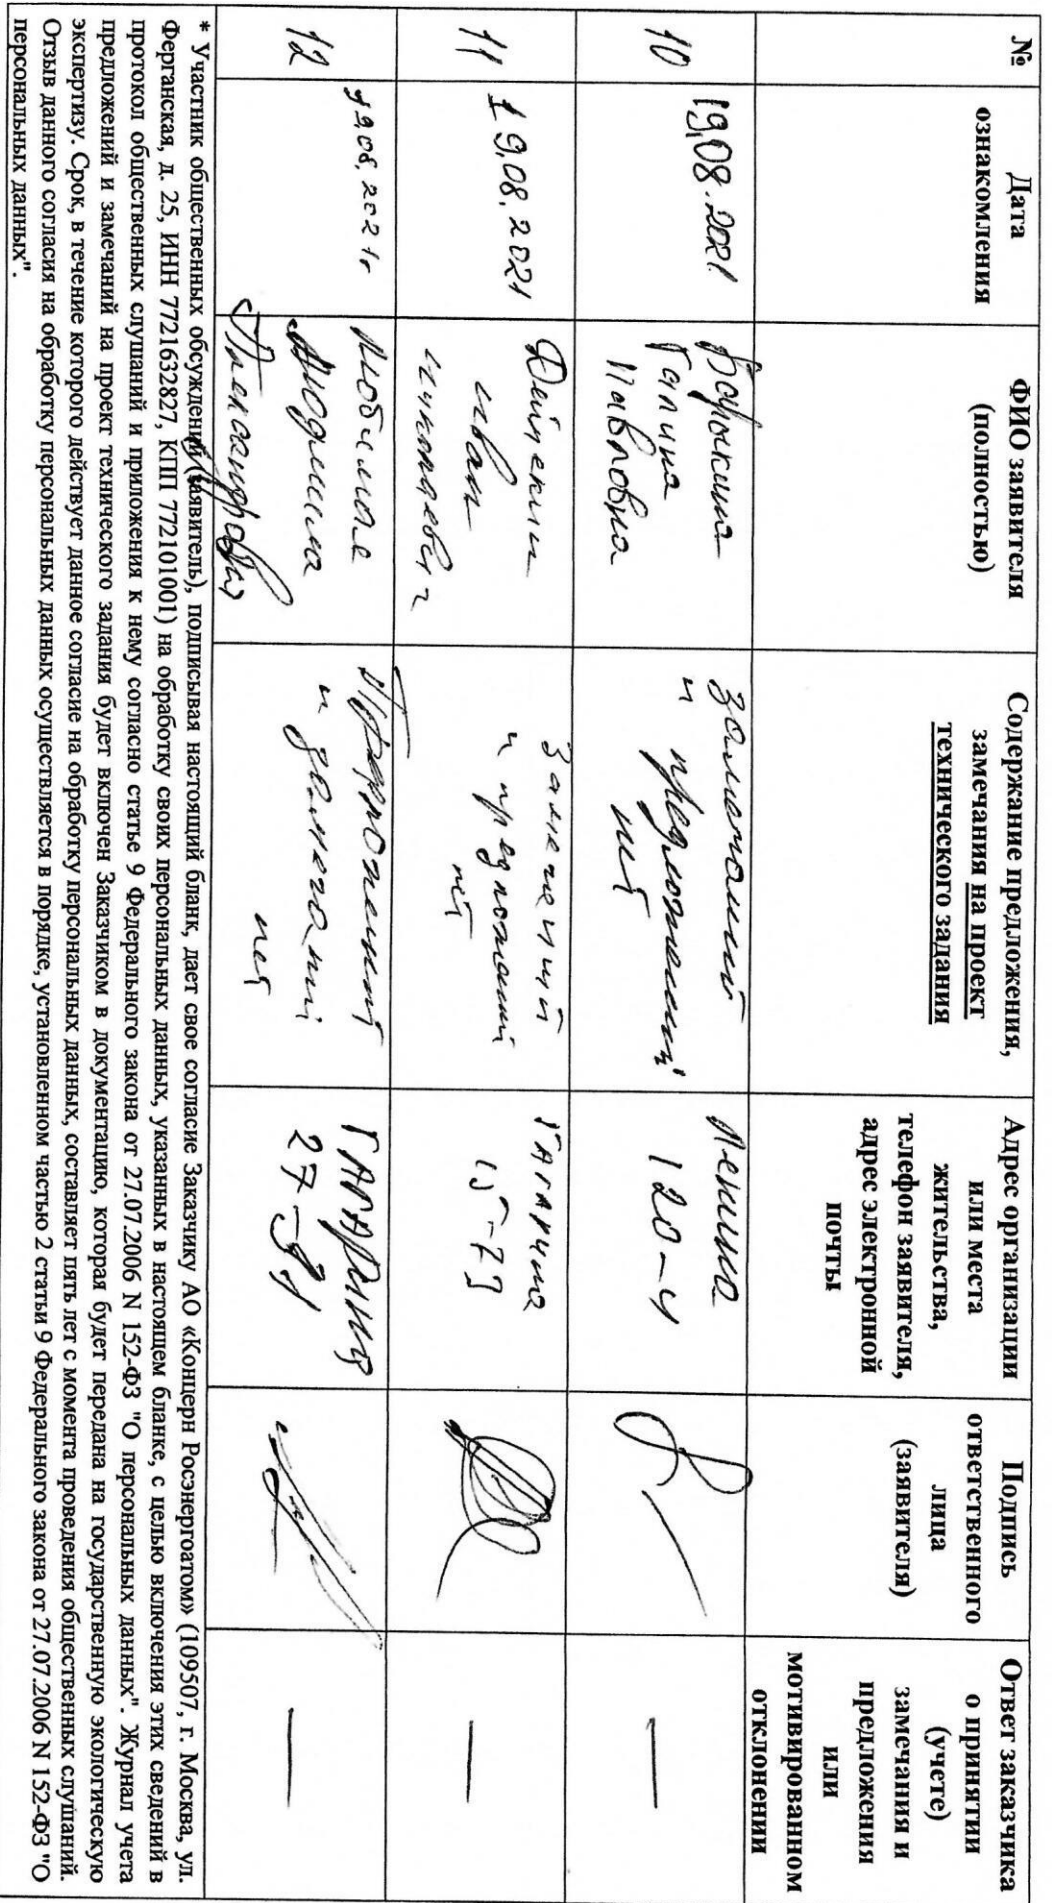 №
Дата
ознакомления
ФИО заявителя
(полностью)
Содержание предложения,
замечания на проект
технического задания
Адрес организации
или места
жительства,
телефон заявителя,
адрес электронной
почты
Подпись
ответственного
лица
(заявителя)
Ответ заказчика
о принятии
(учете)
замечания и
предложения
или
мотивированном
отклонении
10
19.08.2021
Галина
Павловна
Замечаний
и предложений
нет
Ленина
120-4
—
11
19.08.2021
Иван
Николаевич
Замечаний
и предложений
нет
Гагарина
15-79
—
12
19.08.2021г
Людмила
Александровна
Предложений
и замечаний
нет
Гагарина
—
* Участник общественных обсуждений (заявитель), подписывая настоящий бланк, дает свое согласие Заказчику АО «Концерн Росэнергоатом» (109507, г. Москва, ул.
Ферганская, д. 25, ИНН 7721632827, КПП 772101001) на обработку своих персональных данных, указанных в настоящем бланке, с целью включения этих сведений в
протокол общественных слушаний и приложения к нему согласно статье 9 Федерального закона от 27.07.2006 N 152-ФЗ "О персональных данных". Журнал учета
предложений и замечаний на проект технического задания будет включен Заказчиком в документацию, которая будет передана на государственную экологическую
экспертизу. Срок, в течение которого действует данное согласие на обработку персональных данных, составляет пять лет с момента проведения общественных слушаний.
Отзыв данного согласия на обработку персональных данных осуществляется в порядке, установленном частью 2 статьи 9 Федерального закона от 27.07.2006 N 152-ФЗ "О
персональных данных".